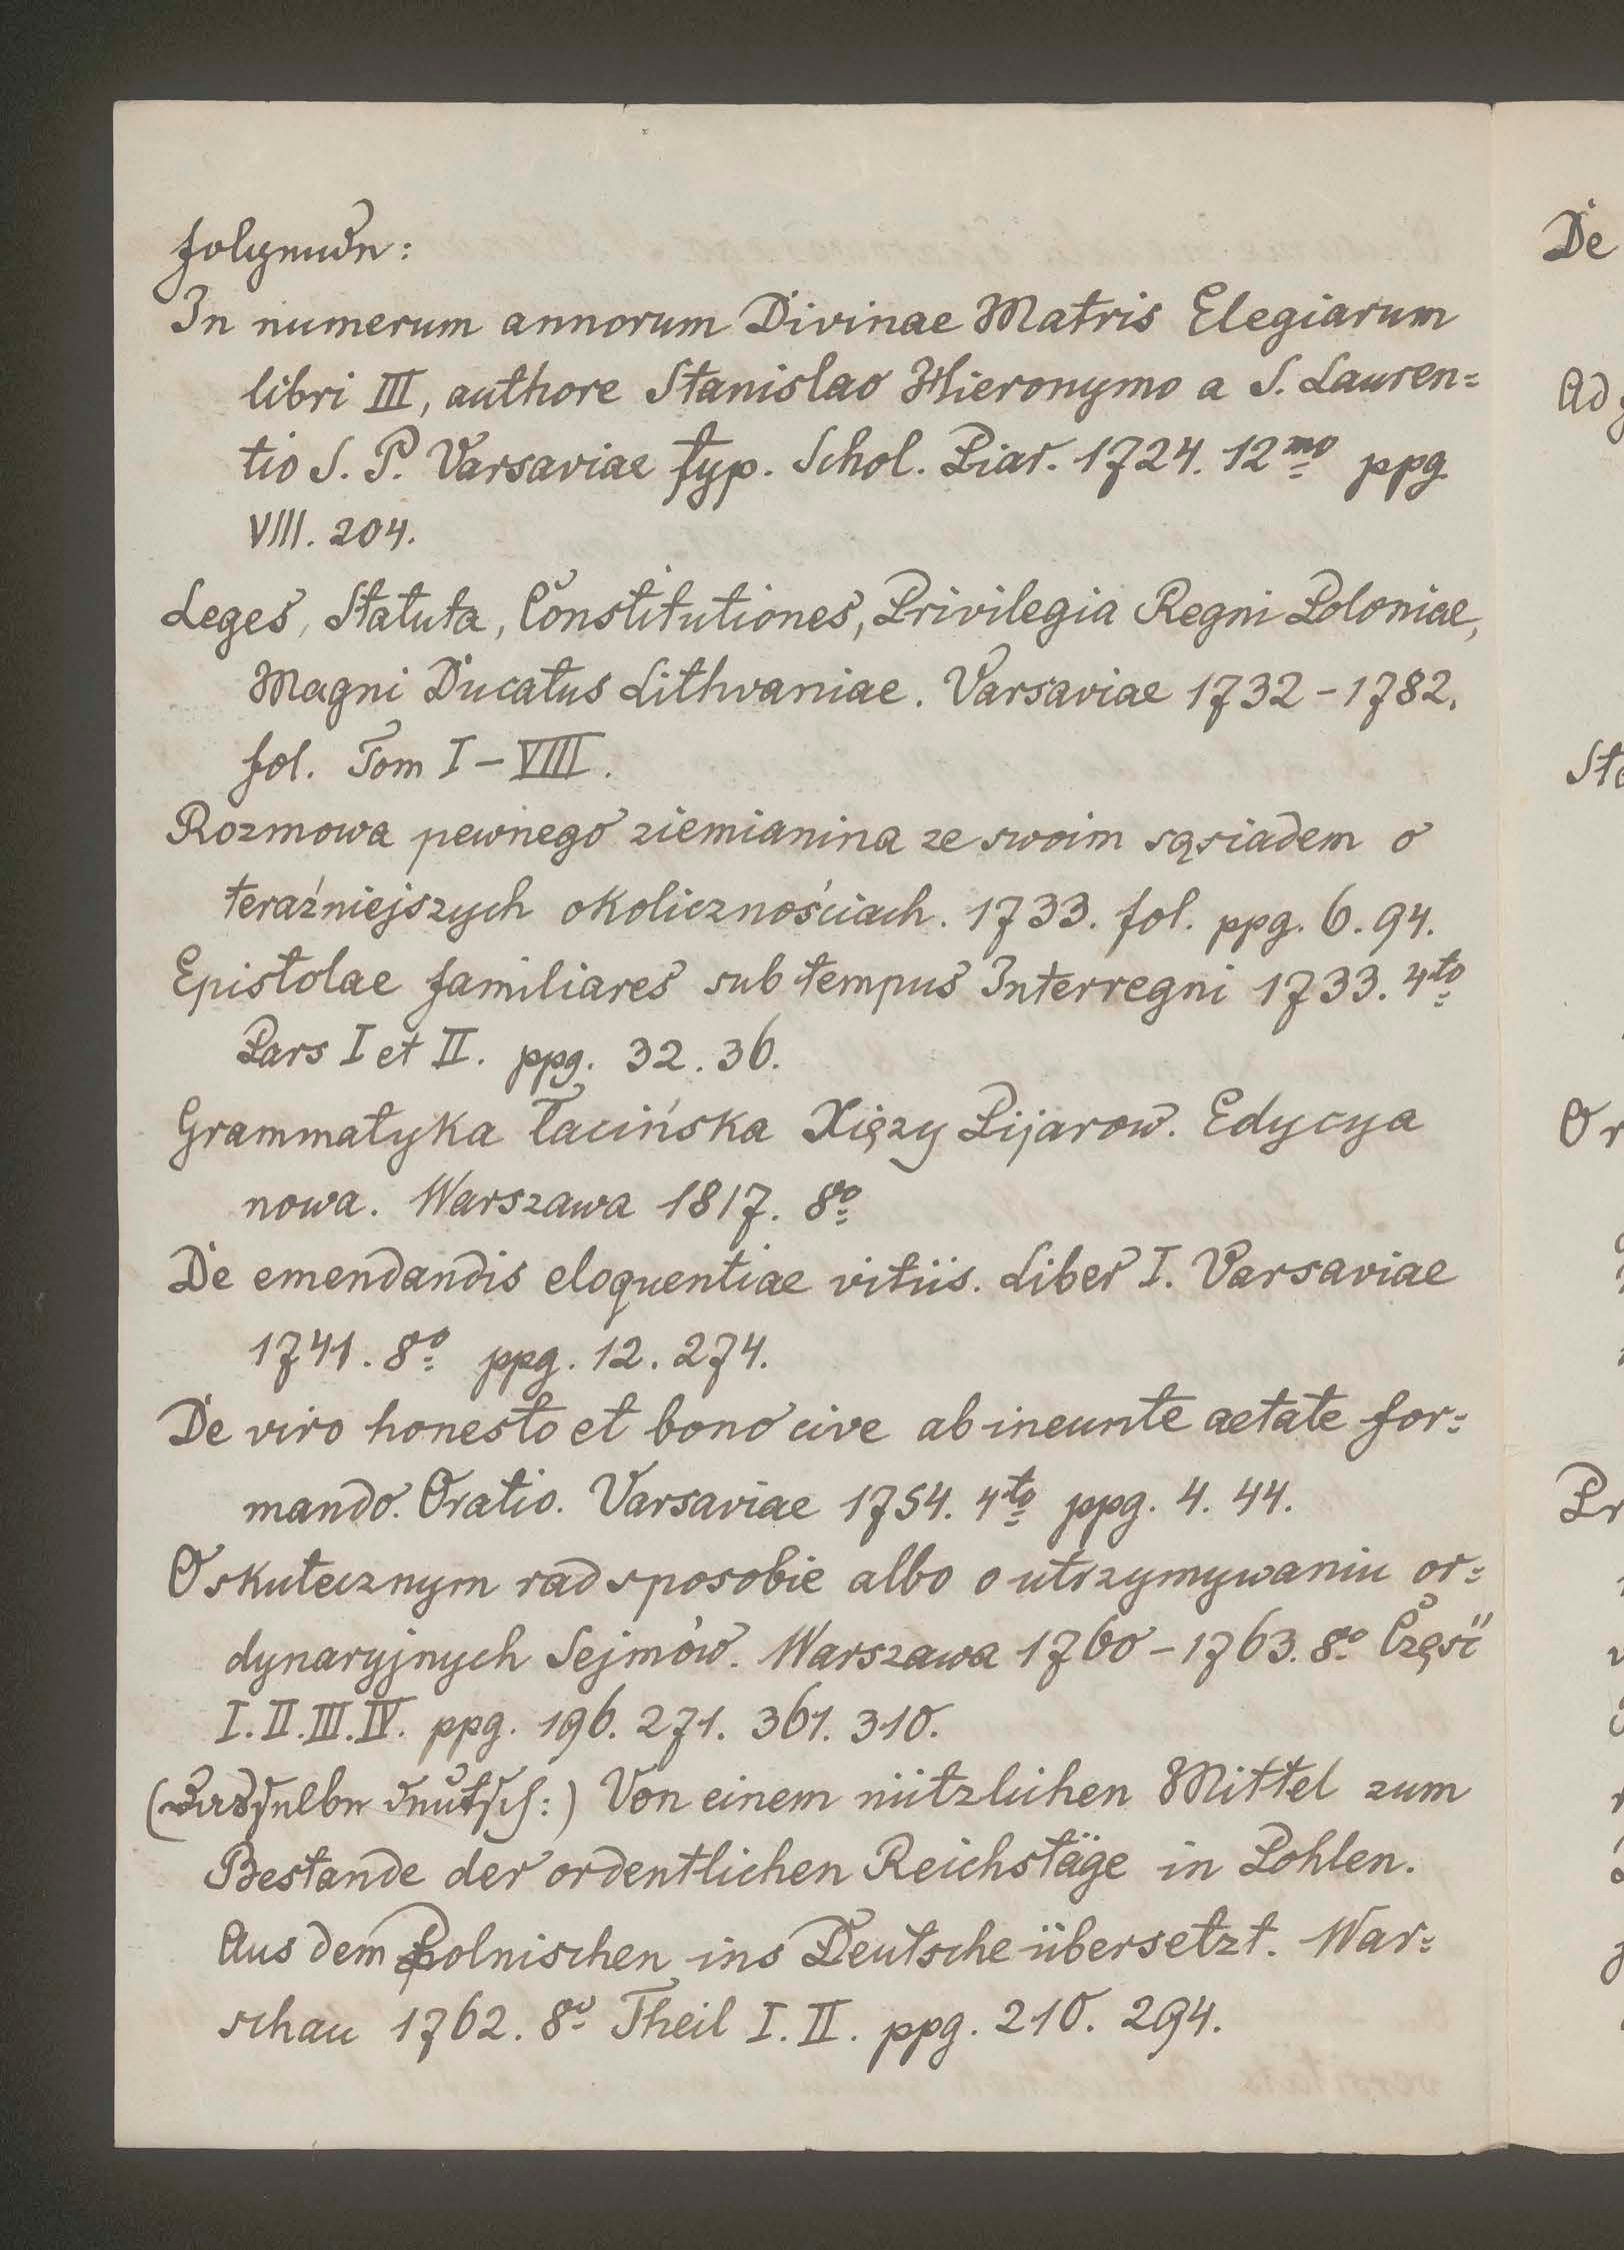 folgenden:
In numerum annorum Divinae Matris Elegiarum
libri III, authore Stanislao Hieronymo a S. Lauren=
tio S. P. Varsaviae typ. Schol. Piar. 1724. 12mo ppg.
VIII. 204.
Leges, Statuta, Constitutiones, Privilegia Regni Poloniae,
Magni Ducatus Lithvaniae. Varsaviae 1732 - 1782.
fol. Tom I - VIII.
Rozmowa pewnego ziemianina ze swoim sąsiadem o
teraźniejszych okolicznościach. 1733. fol. ppg. 6. 94.
Epistolae familiares sub tempus Interregni 1733. 4to
Pars I et II. ppg. 32. 36.
Grammatyka Łacińska Xięzy Pijarow. Edycya
nowa. Warszawa 1817. 8o
De emendandis eloquentiae vitiis. Liber I. Varsaviae
1741. 8o ppg. 12. 274.
De viro honesto et bono cive ab ineunte aetate for=
mando. Oratio. Varsaviae 1754. 4to ppg. 4. 44.
O skutecznym rad sposobie albo o utrzymywaniu or=
dynaryjnych Sejmów. Warszawa 1760 - 1763. 8o Część
I. II. III. IV. ppg. 196. 271. 361. 310.
(Dasselbe deutsch:) Von einem nützlichen Mittel zum
Bestande der ordentlichen Reichstäge in Pohlen.
Aus dem Polnischen ins Deutsche übersetzt. War=
schau 1762. 8o Theil I. II. ppg. 210. 294.
De
Ad
Pr